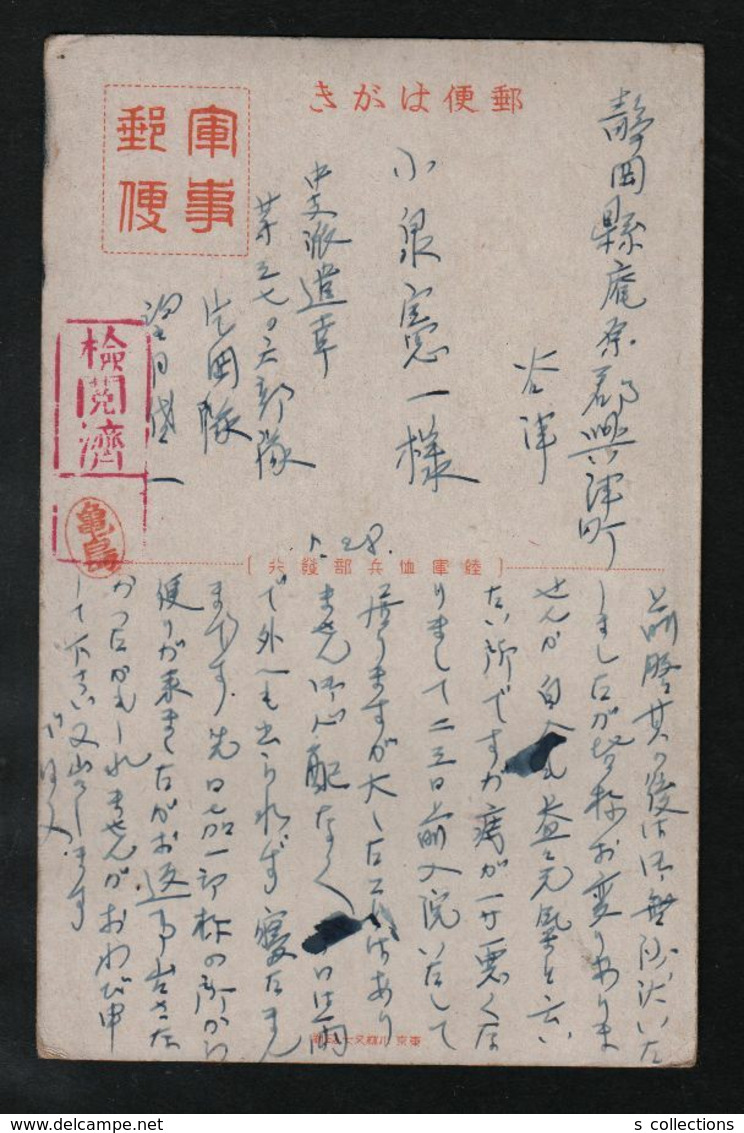 郵便はがき
軍事
郵便
静岡縣庵原郡興津町
谷津
小泉憲一様
中支派遣軍
片岡隊
望月
検閲済
亀島
5.28.
陸軍恤兵部發行
前略其の後は御無沙汰いた
しましたが皆様お変りありま
せんか 自分も益々元気と云い
たい所ですが 病が一寸悪くな
りまして二三日前入院いたして
居りますが大した事はあり
ません御心配なく 今日は雨
で外へも出られず寝たまん
まです 先日 一郎様の所から
便りが来ましたがお返事出さな
かったかもしれませんがおわび申
して下さい 又出します
東京
s collections